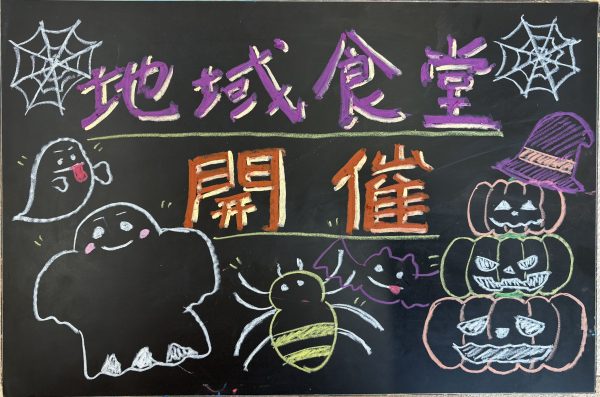 地域食堂
開催